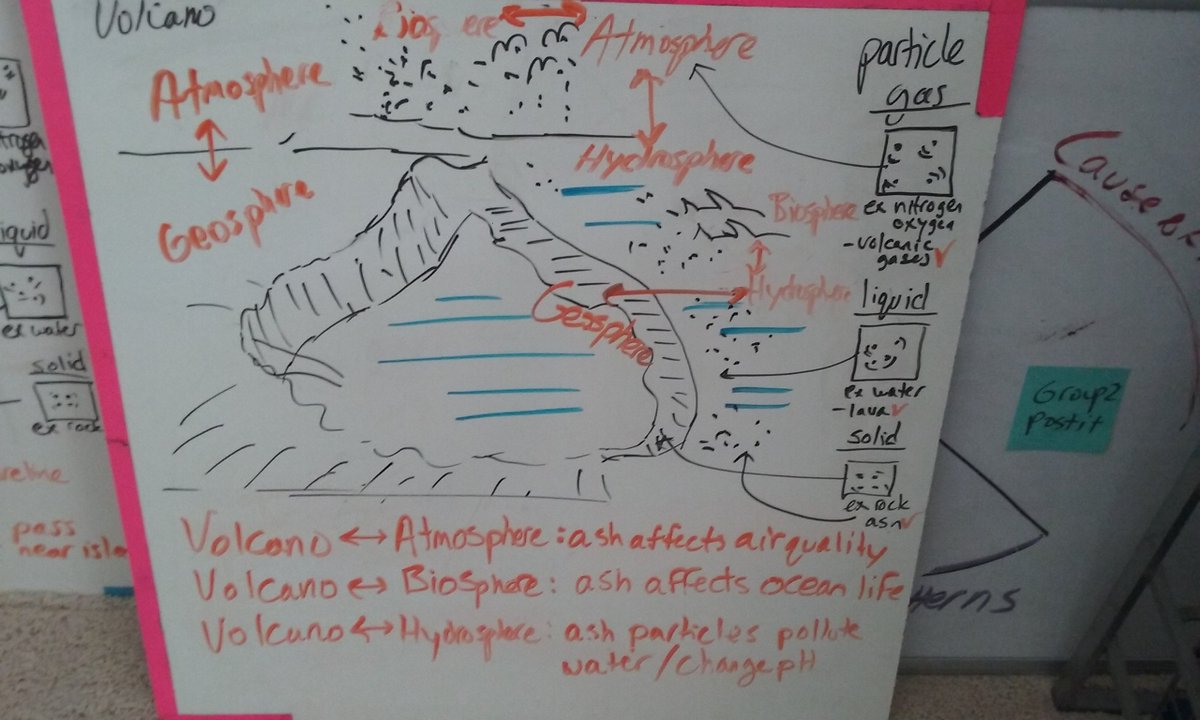 Volcano
Biosphere
Atmosphere
Atmosphere
Geosphere
Hydrosphere
Biosphere
Hydrosphere
Geosphere
particle
gas
ex nitrogen
oxygen
-volcanic
gases
liquid
ex water
-lava
solid
ex rock
ash
Volcano ↔ Atmosphere: ash affects air quality
Volcano ↔ Biosphere: ash affects ocean life
Volcano ↔ Hydrosphere: ash particles pollute
water/change pH
ex water
solid
ex rock
pass
near
Cause
Group 2
postit